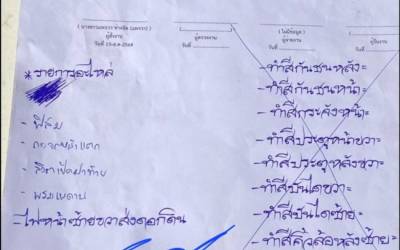 ผู้สั่งงาน
ผู้ตรวจงาน
(ไม่มีข้อมูล)
ผู้จ่ายงาน
ผู้รับงาน
วันที่
วันที่
วันที่
*รายการอะไหล่
- ฟิล์ม
- พรมเพดาน
-ไฟหน้าซ้ายขวาส่งดอกดิน
-ทำสีกันชนหลัง=
-ทำสีกันชนหน้า=
-ทำสีกระจังหน้า=
-ทำสีประตูหน้าขวา=
-ทำสีประตูหลังขวา=
-ทำสีบันไดขวา=
-ทำสีบันไดซ้าย=
-ทำสีคิ้วล้อหลังซ้าย=